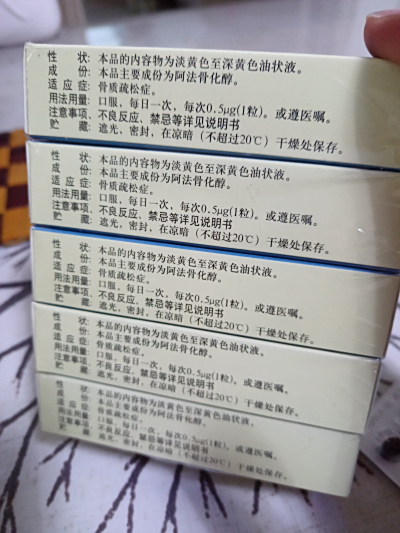 性 状: 本品的内容物为淡黄色至深黄色油状液。
成 份: 本品主要成份为阿法骨化醇。
适 应 症: 骨质疏松症。
用法用量: 口服，每日一次，每次0.5μg(1粒)。或遵医嘱。
注意事项、不良反应、禁忌等详见说明书
贮 藏: 遮光，密封，在凉暗（不超过20℃）干燥处保存。
性 状: 本品的内容物为淡黄色至深黄色油状液。
成 份: 本品主要成份为阿法骨化醇。
适 应 症: 骨质疏松症。
用法用量: 口服，每日一次，每次0.5μg(1粒)。或遵医嘱。
注意事项、不良反应、禁忌等详见说明书
贮 藏: 遮光，密封，在凉暗（不超过20℃）干燥处保存。
性 状: 本品的内容物为淡黄色至深黄色油状液。
成 份: 本品主要成份为阿法骨化醇。
适 应 症: 骨质疏松症。
用法用量: 口服，每日一次，每次0.5μg(1粒)。或遵医嘱。
注意事项、不良反应、禁忌等详见说明书
贮 藏: 遮光，密封，在凉暗（不超过20℃）干燥处保存。
性 状: 本品的内容物为淡黄色至深黄色油状液。
成 份: 本品主要成份为阿法骨化醇。
适 应 症: 骨质疏松症。
用法用量: 口服，每日一次，每次0.5μg(1粒)。或遵医嘱。
注意事项、不良反应、禁忌等详见说明书
贮 藏: 遮光，密封，在凉暗（不超过20℃）干燥处保存。
性 状: 本品的内容物为淡黄色至深黄色油状液。
成 份: 本品主要成份为阿法骨化醇。
适 应 症: 骨质疏松症。
用法用量: 口服，每日一次，每次0.5μg(1粒)。或遵医嘱。
注意事项、不良反应、禁忌等详见说明书
贮 藏: 遮光，密封，在凉暗（不超过20℃）干燥处保存。